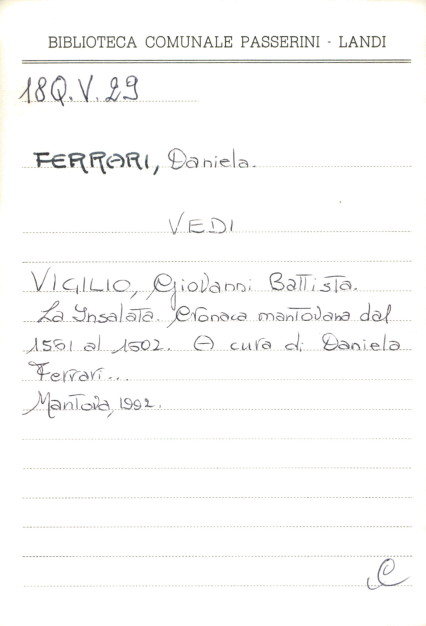 BIBLIOTECA COMUNALE PASSERINI - LANDI
18Q.V.29
FERRARI, Daniela.
VEDI
VIGILIO, Giovanni Battista.
La Insalata. Cronaca mantovana dal
1561 al 1602. A cura di Daniela
Ferrari...
Mantova, 1992.
C